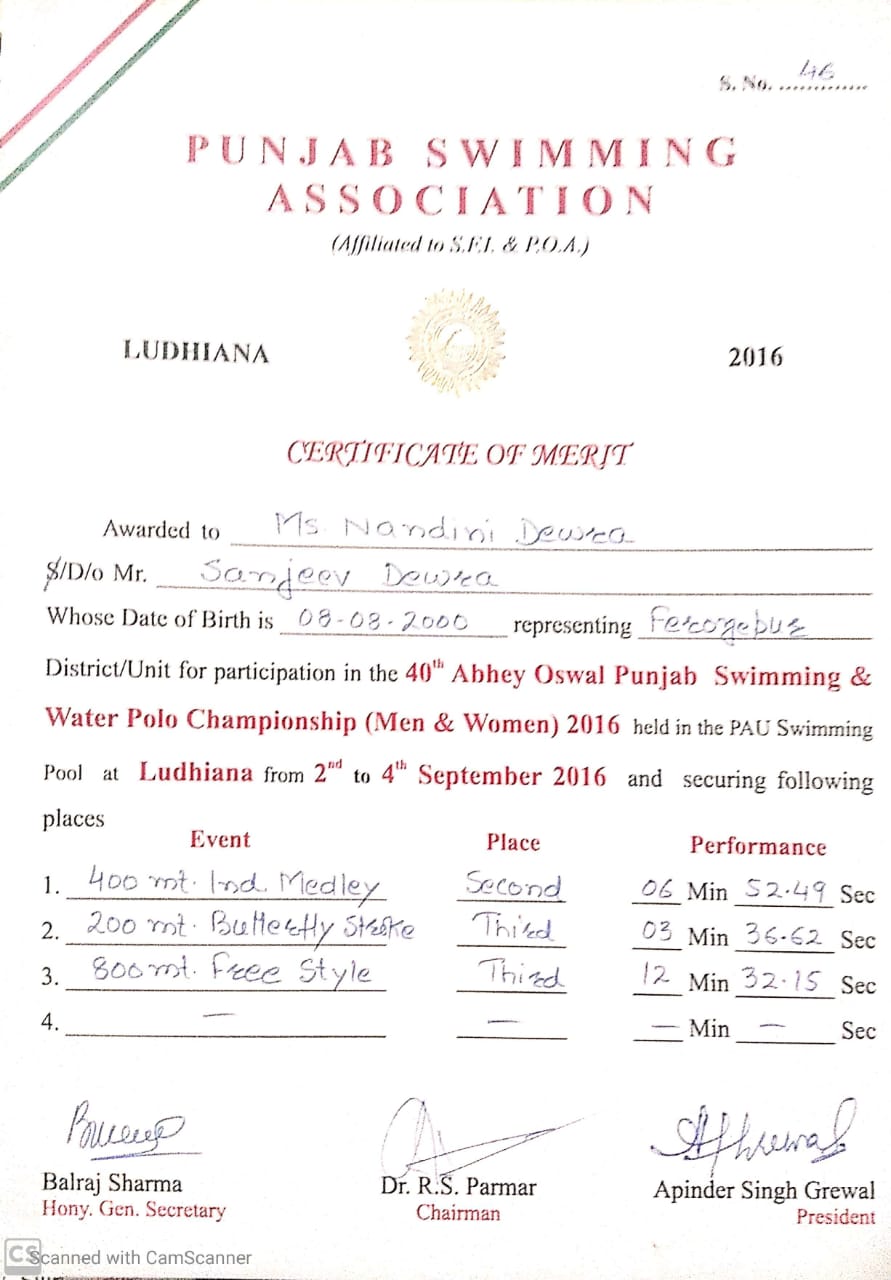 S. No. 46
PUNJAB SWIMMING
ASSOCIATION
(Affiliated to S.F.I. & P.O.A.)
LUDHIANA 2016
CERTIFICATE OF MERIT
Awarded to Ms. Nandini Dewra
S/D/o Mr. Sanjeev Dewra
Whose Date of Birth is 08-08-2000 representing Ferozepur
District/Unit for participation in the 40th Abhey Oswal Punjab Swimming &
Water Polo Championship (Men & Women) 2016 held in the PAU Swimming
Pool at Ludhiana from 2nd to 4th September 2016 and securing following
places
Event Place Performance
1. 400 mt. Ind. Medley Second 06 Min 52.49 Sec
2. 200 mt. Butterfly Stroke Third 03 Min 36.62 Sec
3. 800 mt. Free Style Third 12 Min 32.15 Sec
4. — — — Min — Sec
Balraj Sharma Dr. R.S. Parmar Apinder Singh Grewal
Hony. Gen. Secretary Chairman President
CS Scanned with CamScanner